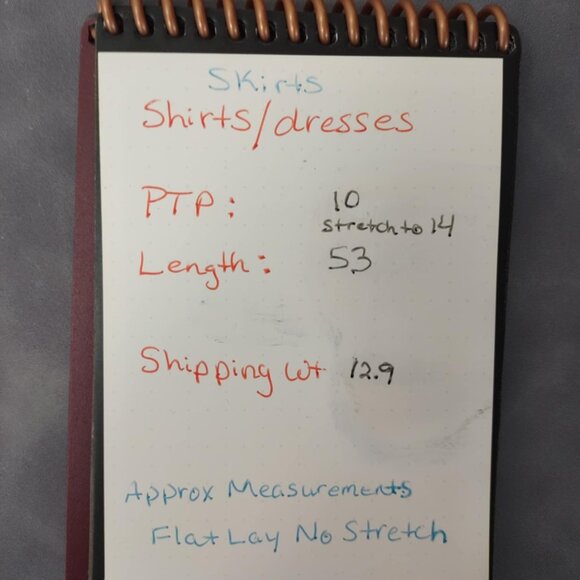 Skirts
Shirts/dresses
PTP: 10
Stretch to 14
Length: 53
Shipping Wt 12.9
Approx Measurements
Flat Lay No Stretch